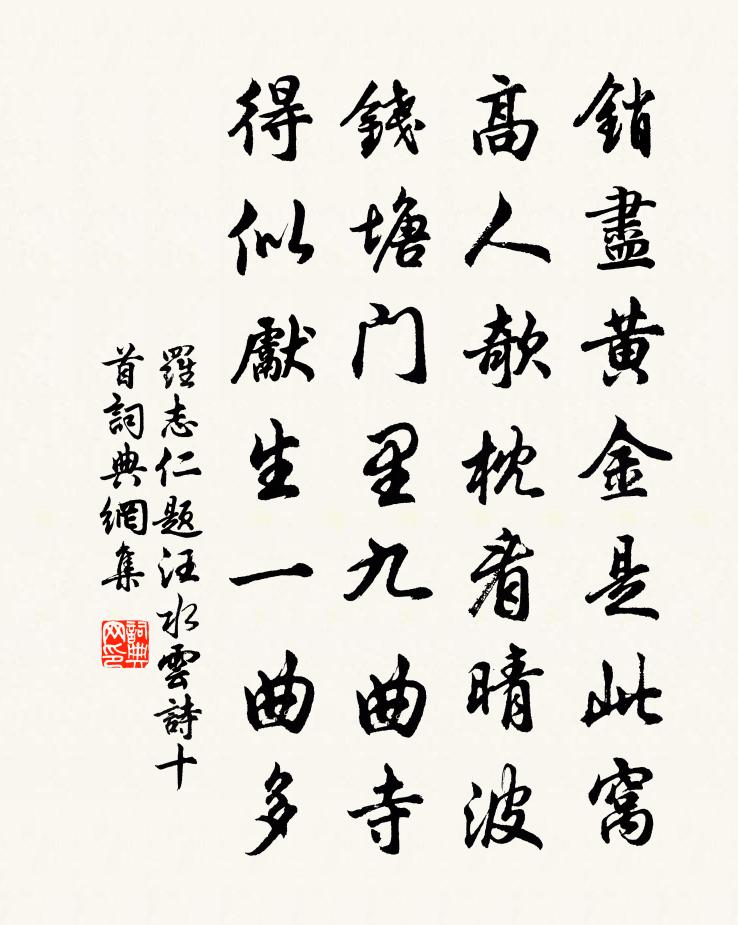 銷盡黄金是此窩
高人欹枕看晴波
錢塘門里九曲寺
得似獻生一曲多
羅志仁題汪水雲詩十
首詞典網集
詞典
网印